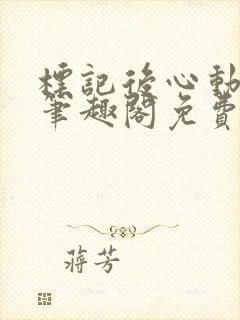 標記後心動
筆趣閣免費
蔣芳